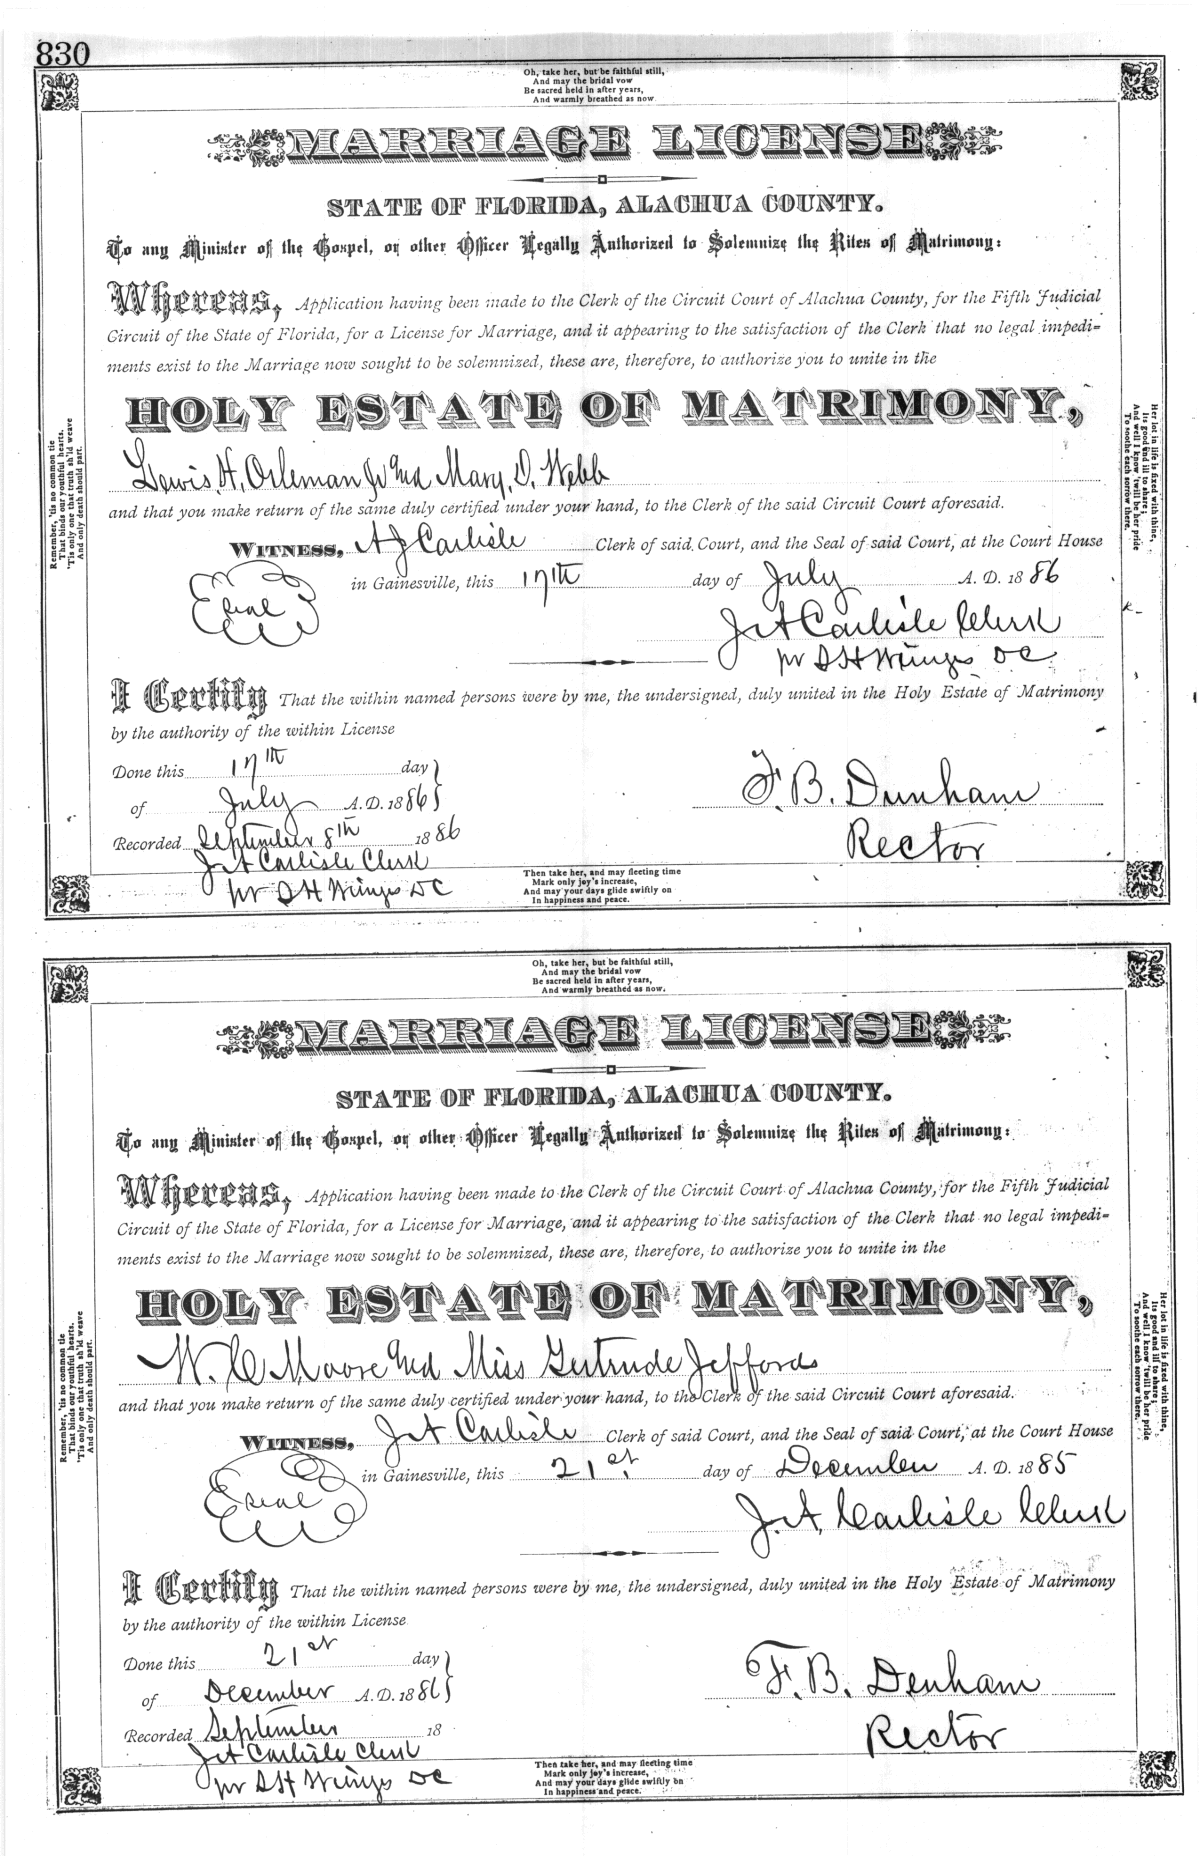 830
Oh, take her, but be faithful still,
And may the bridal vow
Be sacred held in after years,
And warmly breathed as now
MARRIAGE LICENSE
STATE OF FLORIDA, ALACHUA COUNTY.
To any Minister of the Gospel, or other Officer Legally Authorized to Solemnize the Rites of Matrimony:
Whereas, Application having been made to the Clerk of the Circuit Court of Alachua County, for the Fifth Judicial
Circuit of the State of Florida, for a License for Marriage, and it appearing to the satisfaction of the Clerk that no legal impedi=
ments exist to the Marriage now sought to be solemnized, these are, therefore, to authorize you to unite in the
HOLY ESTATE OF MATRIMONY,
Lewis. H. Orleman Jr and Mary. D. Webb
and that you make return of the same duly certified under your hand, to the Clerk of the said Circuit Court aforesaid.
WITNESS, A J Carlisle Clerk of said Court, and the Seal of said Court, at the Court House
Seal in Gainesville, this 17th day of July A. D. 1886
J A Carlisle Clerk
pr S H Wings DC
I Certify That the within named persons were by me, the undersigned, duly united in the Holy Estate of Matrimony
by the authority of the within License
Done this 17th day
of July A. D. 1886
F. B. Dunham
Recorded September 8th 1886
Rector
J A Carlisle Clerk
pr S H Wings DC
Then take her, and may fleeting time
Mark only joy's increase,
And may your days glide swiftly on
In happiness and peace.
Remember, 'tis no common tie
That binds our youthful hearts,
'Tis only one that truth sh'ld weave
And only death should part.
Her lot in life is fixed with thine,
Its good and ill to share;
And well I know 'twill be her pride
To soothe each sorrow there.
Oh, take her, but be faithful still,
And may the bridal vow
Be sacred held in after years,
And warmly breathed as now.
MARRIAGE LICENSE
STATE OF FLORIDA, ALACHUA COUNTY.
To any Minister of the Gospel, or other Officer Legally Authorized to Solemnize the Rites of Matrimony:
Whereas, Application having been made to the Clerk of the Circuit Court of Alachua County, for the Fifth Judicial
Circuit of the State of Florida, for a License for Marriage, and it appearing to the satisfaction of the Clerk that no legal impedi=
ments exist to the Marriage now sought to be solemnized, these are, therefore, to authorize you to unite in the
HOLY ESTATE OF MATRIMONY,
W. C Moore and Miss Gertrude Jeffords
and that you make return of the same duly certified under your hand, to the Clerk of the said Circuit Court aforesaid.
WITNESS, J A Carlisle Clerk of said Court, and the Seal of said Court, at the Court House
Seal in Gainesville, this 21st day of December A. D. 1885
J. A. Carlisle Clerk
I Certify That the within named persons were by me, the undersigned, duly united in the Holy Estate of Matrimony
by the authority of the within License
Done this 21st day
of December A. D. 1886
F. B. Denham
Recorded September 18
Rector
J A Carlisle Clerk
pr S H Wings DC
Then take her, and may fleeting time
Mark only joy's increase,
And may your days glide swiftly on
In happiness and peace.
Remember, 'tis no common tie
That binds our youthful hearts,
'Tis only one that truth sh'ld weave
And only death should part.
Her lot in life is fixed with thine,
Its good and ill to share;
And well I know 'twill be her pride
To soothe each sorrow there.